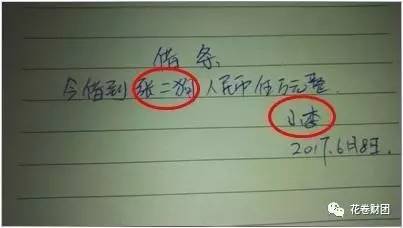 借条
今借到张二狗人民币伍万元整
小李
2017.6月8日.
花卷财团